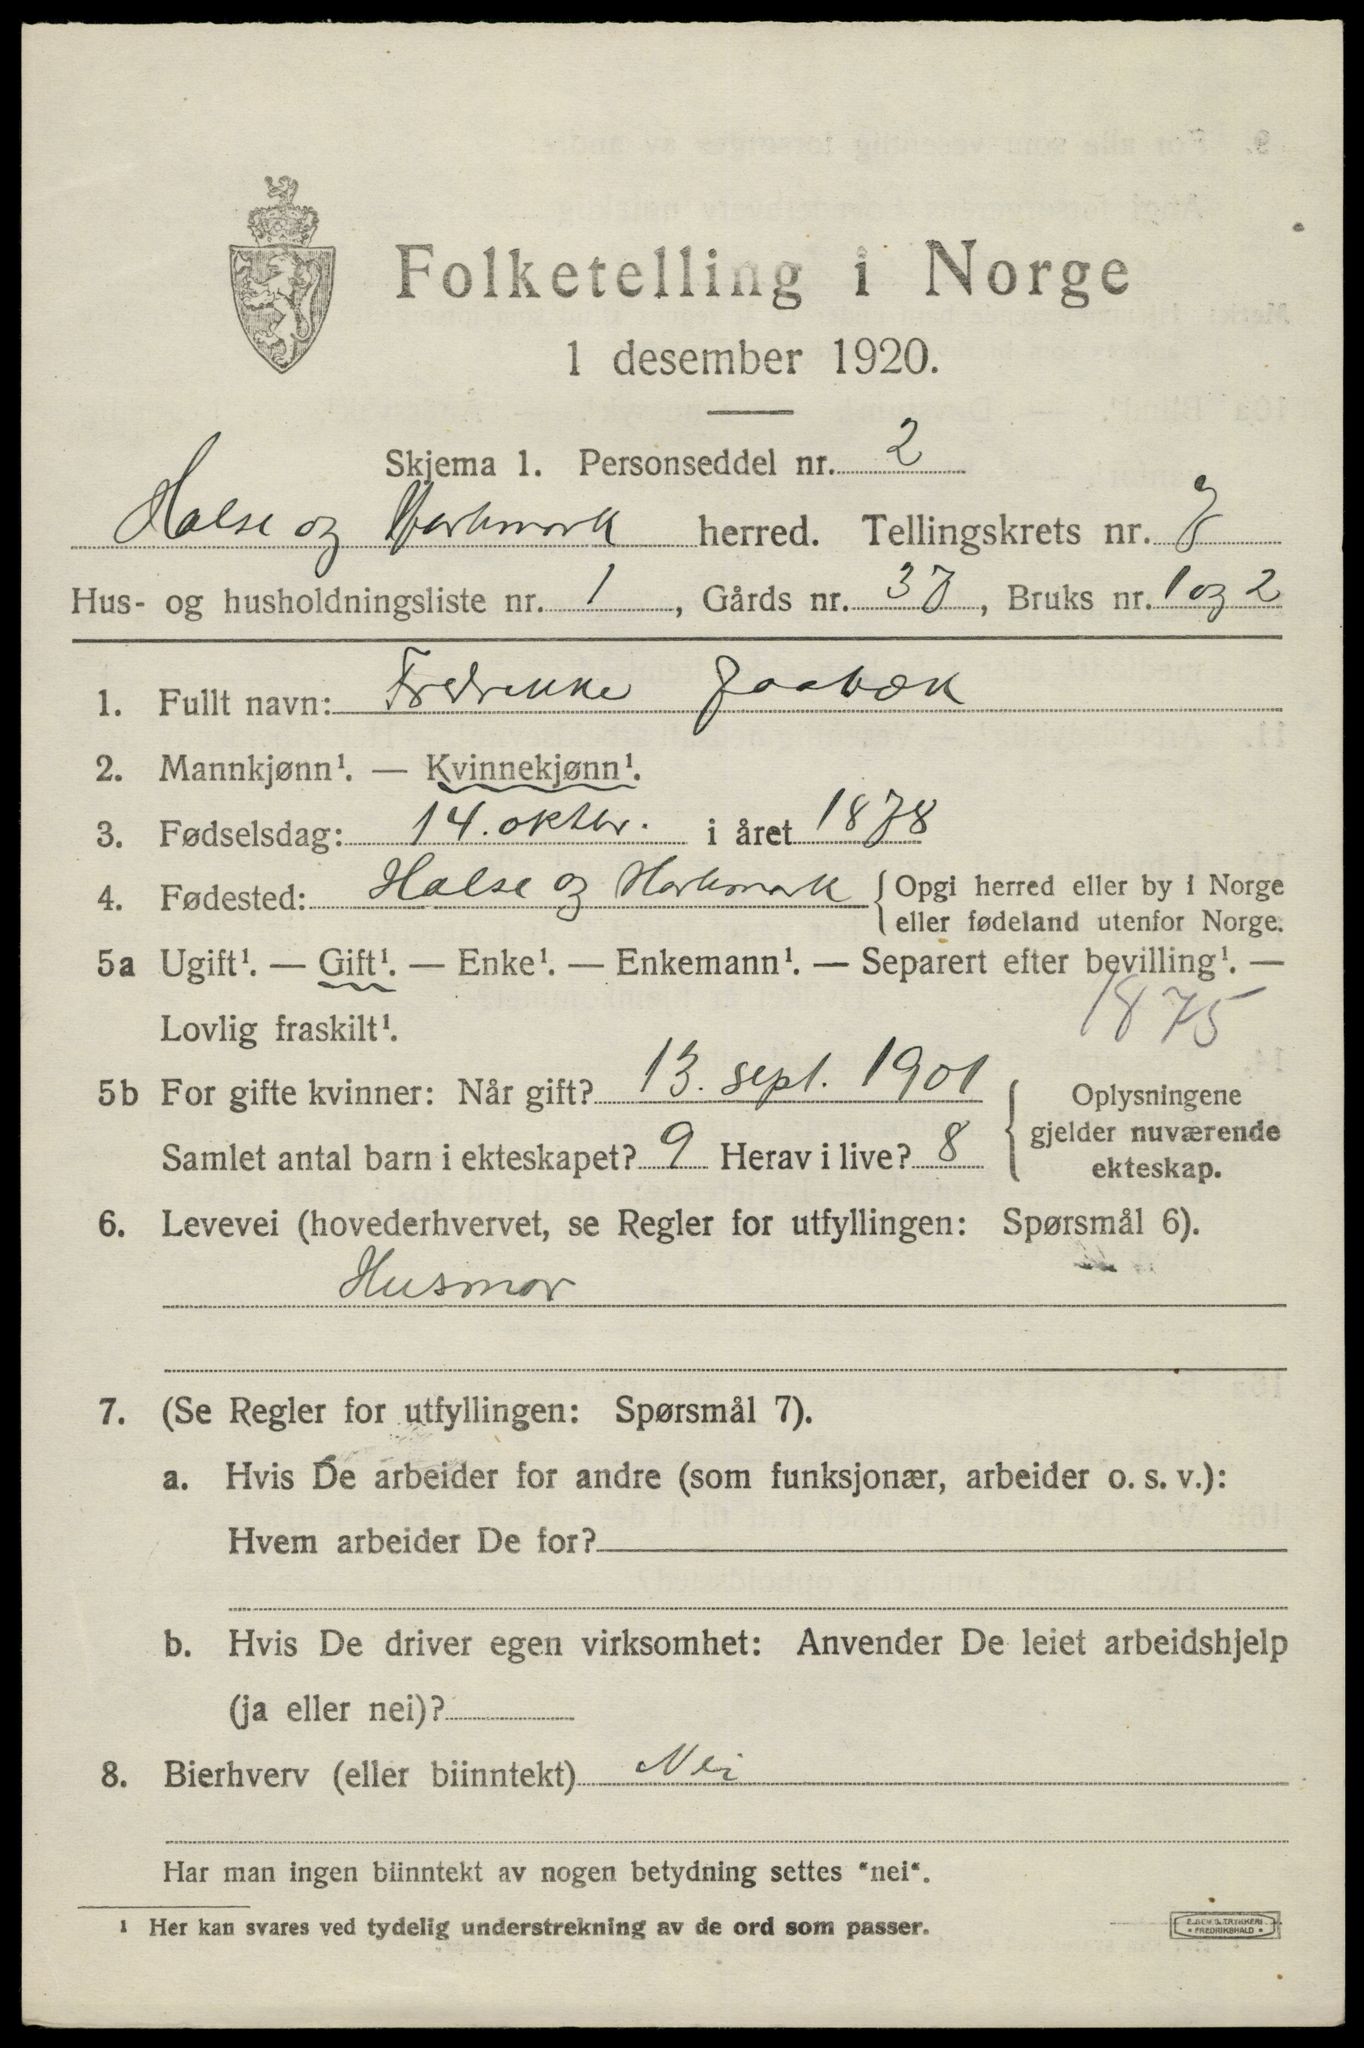 Folketelling i Norge
1 desember 1920.
Skjema 1. Personseddel nr. 2
Halse og Harkmark herred. Tellingskrets nr. 7
Hus- og husholdningsliste nr. 1, Gårds nr. 37, Bruks nr. 1 og 2
1. Fullt navn: Fredrikke Jaabæk
2. Mannkjønn¹. — Kvinnekjønn¹.
3. Fødselsdag: 14. oktbr. i året 1878
4. Fødested: Halse og Harkmark { Opgi herred eller by i Norge
eller fødeland utenfor Norge.
5a Ugift¹. — Gift¹. — Enke¹. — Enkemann¹. — Separert efter bevilling¹. —
Lovlig fraskilt¹.
1875
5b For gifte kvinner: Når gift? 13. sept. 1901
Samlet antal barn i ekteskapet? 9 Herav i live? 8
Oplysningene
gjelder nuværende
ekteskap.
6. Levevei (hovederhvervet, se Regler for utfyllingen: Spørsmål 6).
Husmor
7. (Se Regler for utfyllingen: Spørsmål 7).
a. Hvis De arbeider for andre (som funksjonær, arbeider o. s. v.):
Hvem arbeider De for?
b. Hvis De driver egen virksomhet: Anvender De leiet arbeidshjelp
(ja eller nei)?
8. Bierhverv (eller biinntekt) Nei
Har man ingen biinntekt av nogen betydning settes "nei".
¹ Her kan svares ved tydelig understrekning av de ord som passer.
FREDRIKSHALD